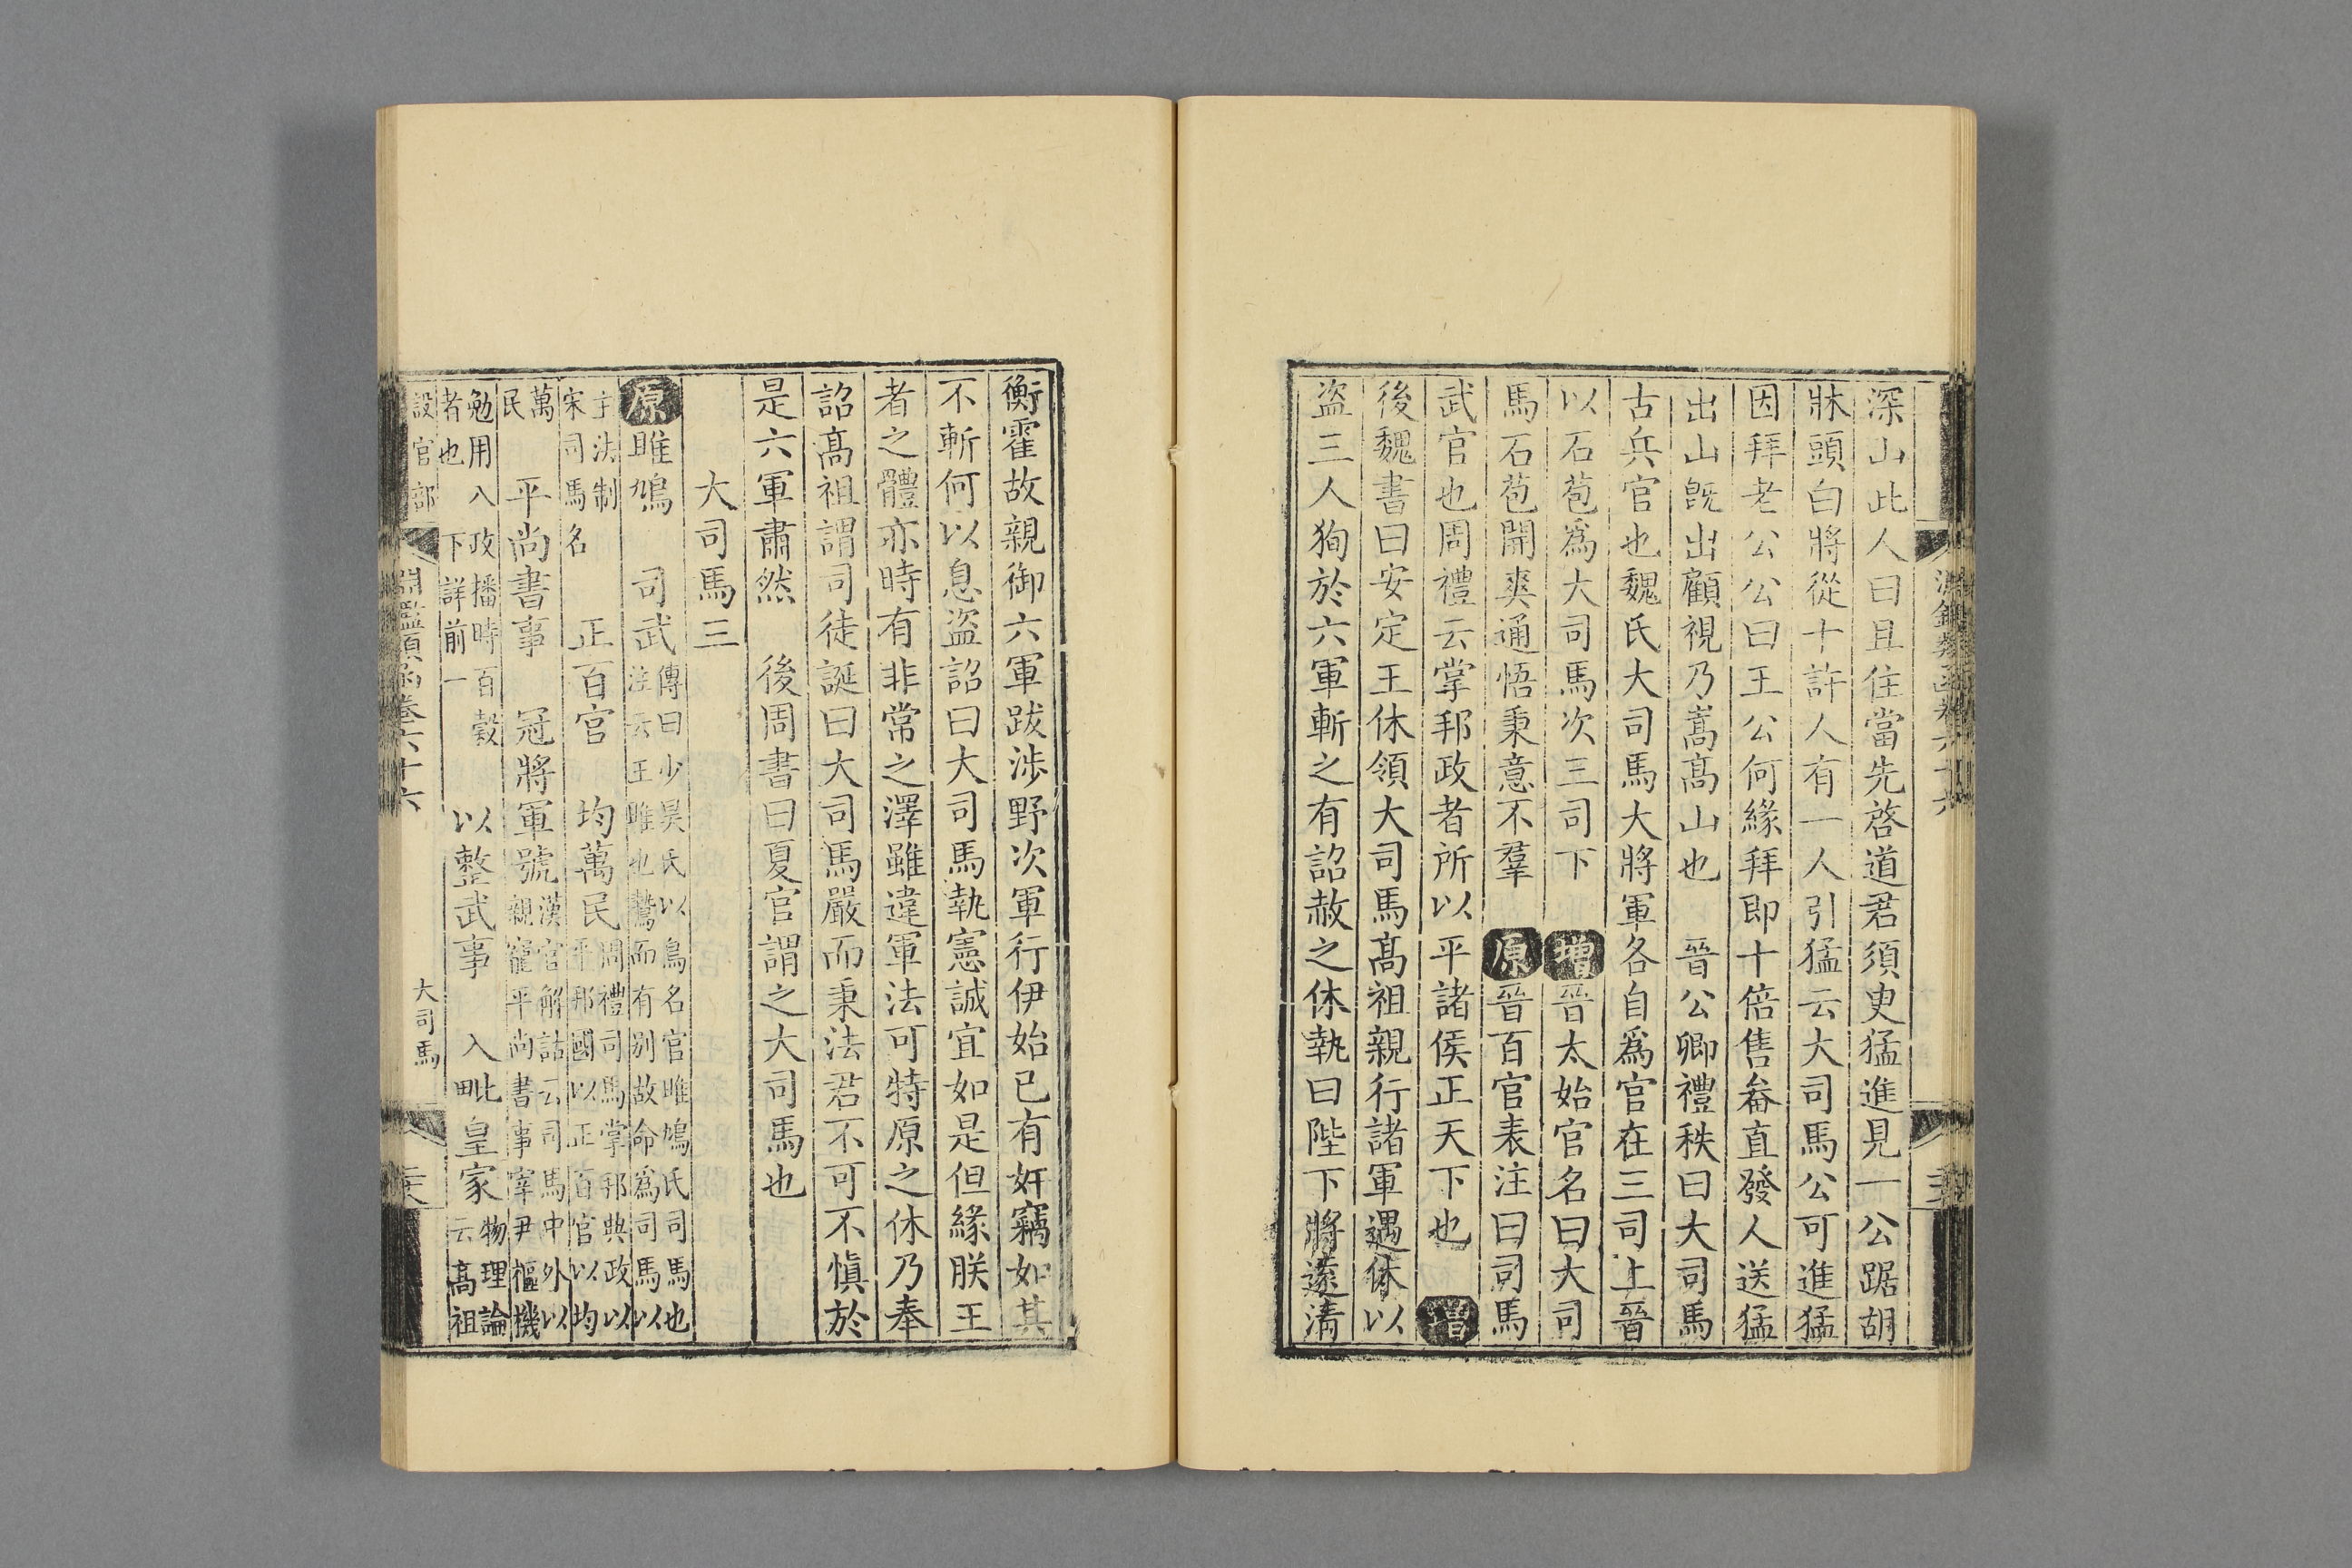 深山此人曰且住當先啓道君須臾猛進見一公踞胡
牀頭白將從十許人有一人引猛云大司馬公可進猛
因拜老公公曰王公何緣拜即十倍售畚直發人送猛
出山旣出顧視乃嵩髙山也 晉公卿禮秩曰大司馬
古兵官也魏氏大司馬大將軍各自爲官在三司上晉
以石苞爲大司馬次三司下 增晉太始官名曰大司
馬石苞開爽通悟秉意不羣 原晉百官表注曰司馬
武官也周禮云掌邦政者所以平諸侯正天下也 增
後魏書曰安定王休領大司馬髙祖親行諸軍遇休以
盗三人狥於六軍斬之有詔赦之休執曰陛下將遠淸
衡霍故親御六軍跋涉野次軍行伊始已有奸竊如其
不斬何以息盗詔曰大司馬執憲誠宜如是但緣朕王
者之體亦時有非常之澤雖違軍法可特原之休乃奉
詔髙祖謂司徒誕曰大司馬嚴而秉法君不可不愼於
是六軍肅然 後周書曰夏官謂之大司馬也
大司馬三
原雎鳩 司武傳曰少昊氏以鳥名官雎鳩氏司馬也
注云王雎也鷙而有别故命爲司馬以
主法制
宋司馬名 正百官 均萬民周禮司馬掌邦典政以
平邦國以正百官以均
萬
民 平尚書事 冠將軍號漢官解詁云司馬中外以
親寵平尚書事宰尹樞機
勉用八政播時百穀
者也 下詳前一 以整武事 入毗皇家物理論
云髙祖
設官部
淵鑑類函卷六十六
大司馬